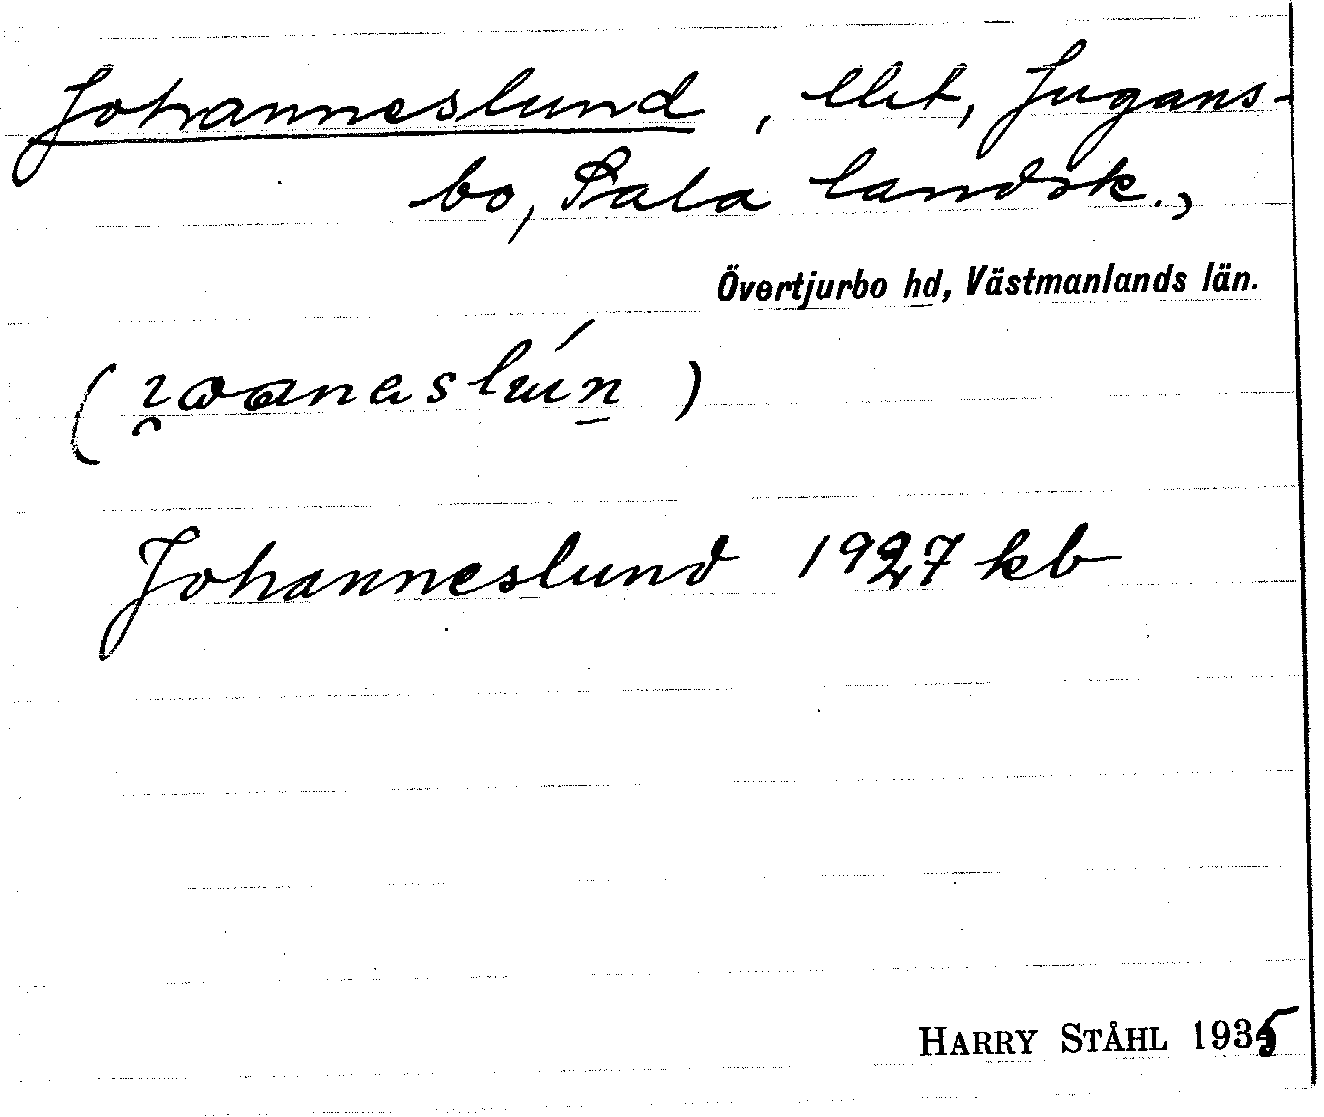 Johanneslund, llht, Jugans-
bo, Sala landsk.,
Övertjurbo hd, Västmanlands län.
Johanneslund 1927 kb
HARRY STÅHL 1935